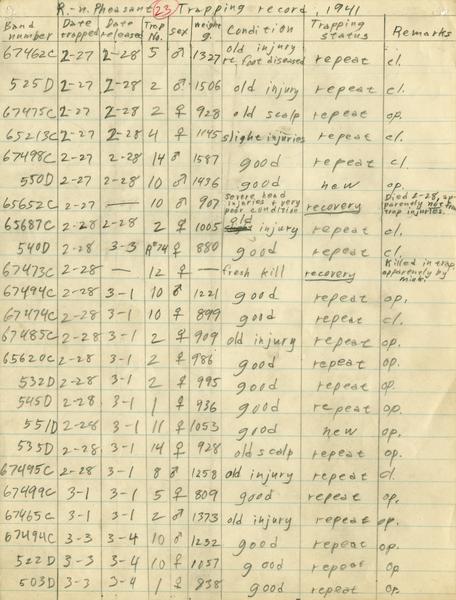 R.n. Pheasant 23 Trapping record, 1941
Band number Date trapped Date released Trap No. sex weight g. Condition Trapping status Remarks
67462C 2-27 2-28 5 ♂ 1327 old injury rt. foot diseased repeat cl.
525D 2-27 2-28 2 ♂ 1506 old injury repeat cl.
67475C 2-27 2-28 2 ♀ 928 old scalp repeat op.
65213C 2-27 2-28 4 ♀ 1145 slight injuries repeat cl.
67498C 2-27 2-28 14 ♂ 1587 good repeat cl.
550D 2-27 2-28 10 ♂ 1436 good new op.
65652C 2-27 — 10 ♂ 907 severe head injuries + very poor condition recovery Died 2-28, apparently not from trap injuries.
65687C 2-28 2-28 2 ♀ 1005 old injury repeat cl.
540D 2-28 3-3 14 ♀ 880 good repeat cl.
67473C 2-28 — 12 ♀ — fresh kill recovery Killed in trap, apparently by mink.
67494C 2-28 3-1 10 ♂ 1221 good repeat op.
67474C 2-28 3-1 10 ♀ 899 good repeat cl.
67485C 2-28 3-1 2 ♀ 909 old injury repeat op.
65620C 2-28 3-1 2 ♀ 986 good repeat op.
532D 2-28 3-1 2 ♀ 995 good repeat op.
545D 2-28 3-1 1 ♀ 936 good repeat op.
551D 2-28 3-1 11 ♀ 1053 good new op.
535D 2-28 3-1 14 ♀ 928 old scalp repeat op.
67495C 2-28 3-1 8 ♂ 1258 old injury repeat cl.
67499C 3-1 3-1 5 ♀ 809 good repeat op.
67465C 3-1 3-1 2 ♂ 1373 old injury repeat op.
67494C 3-3 3-4 10 ♂ 1232 good repeat op.
522D 3-3 3-4 10 ♀ 1057 good repeat op
503D 3-3 3-4 1 ♀ 838 good repeat op.